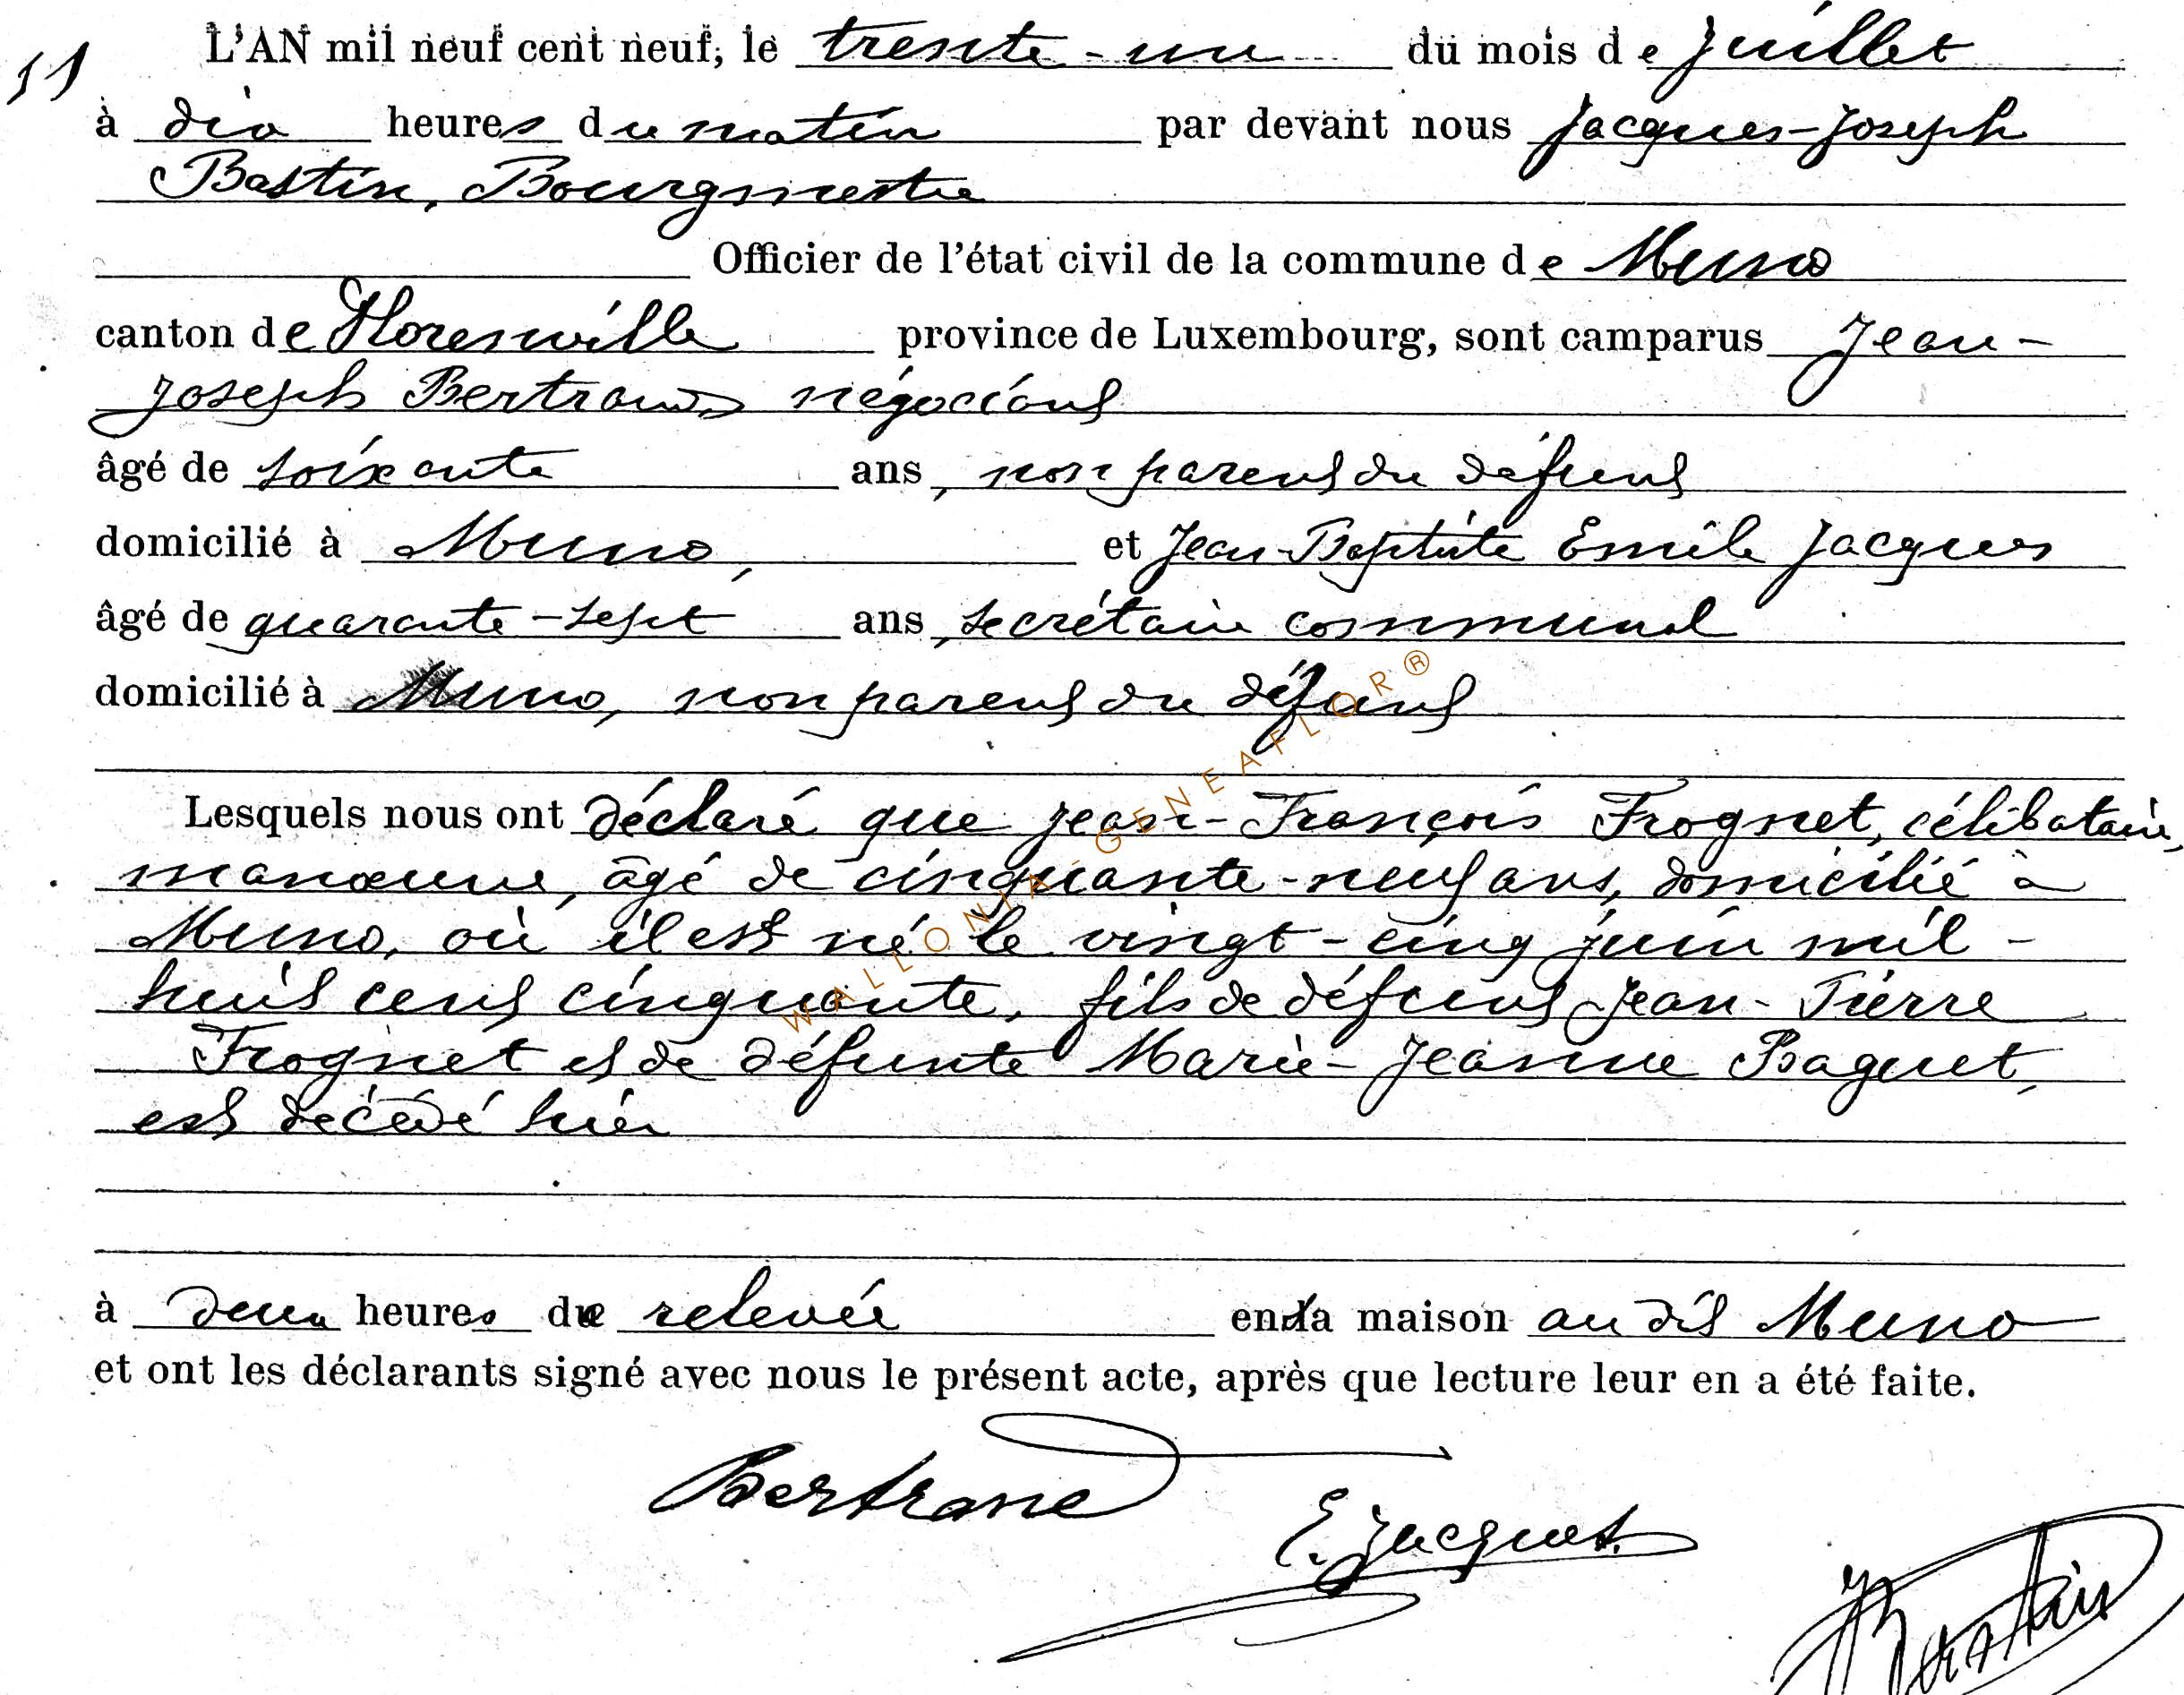 11
L'AN mil neuf cent neuf, le trente-un du mois de juillet
à dix heures du matin par devant nous Jacques-Joseph
Bastin, Bourgmestre
Officier de l'état civil de la commune de Muno
canton de Florenville province de Luxembourg, sont camparus Jean-
Joseph Bertrand négociant
âgé de soixante ans, non parent du défunt
domicilié à Muno, et Jean-Baptiste Emile Jacques
âgé de quarante-sept ans, secrétaire communal
domicilié à Muno, non parent du défunt
Lesquels nous ont déclaré que Jean-François Frognet, célibataire,
manœuvre, âgé de cinquante-neuf ans, domicilié à
Muno, où il est né le vingt-cinq juin mil-
huit cent cinquante, fils de défunt Jean-Pierre
Frognet et de défunte Marie-Jeanne Baguet,
est décédé hier
à deux heures de relevée en sa maison au dit Muno
et ont les déclarants signé avec nous le présent acte, après que lecture leur en a été faite.
Bertrand
E. Jacques
JBastin
WALLONIA GENEAFLOR®